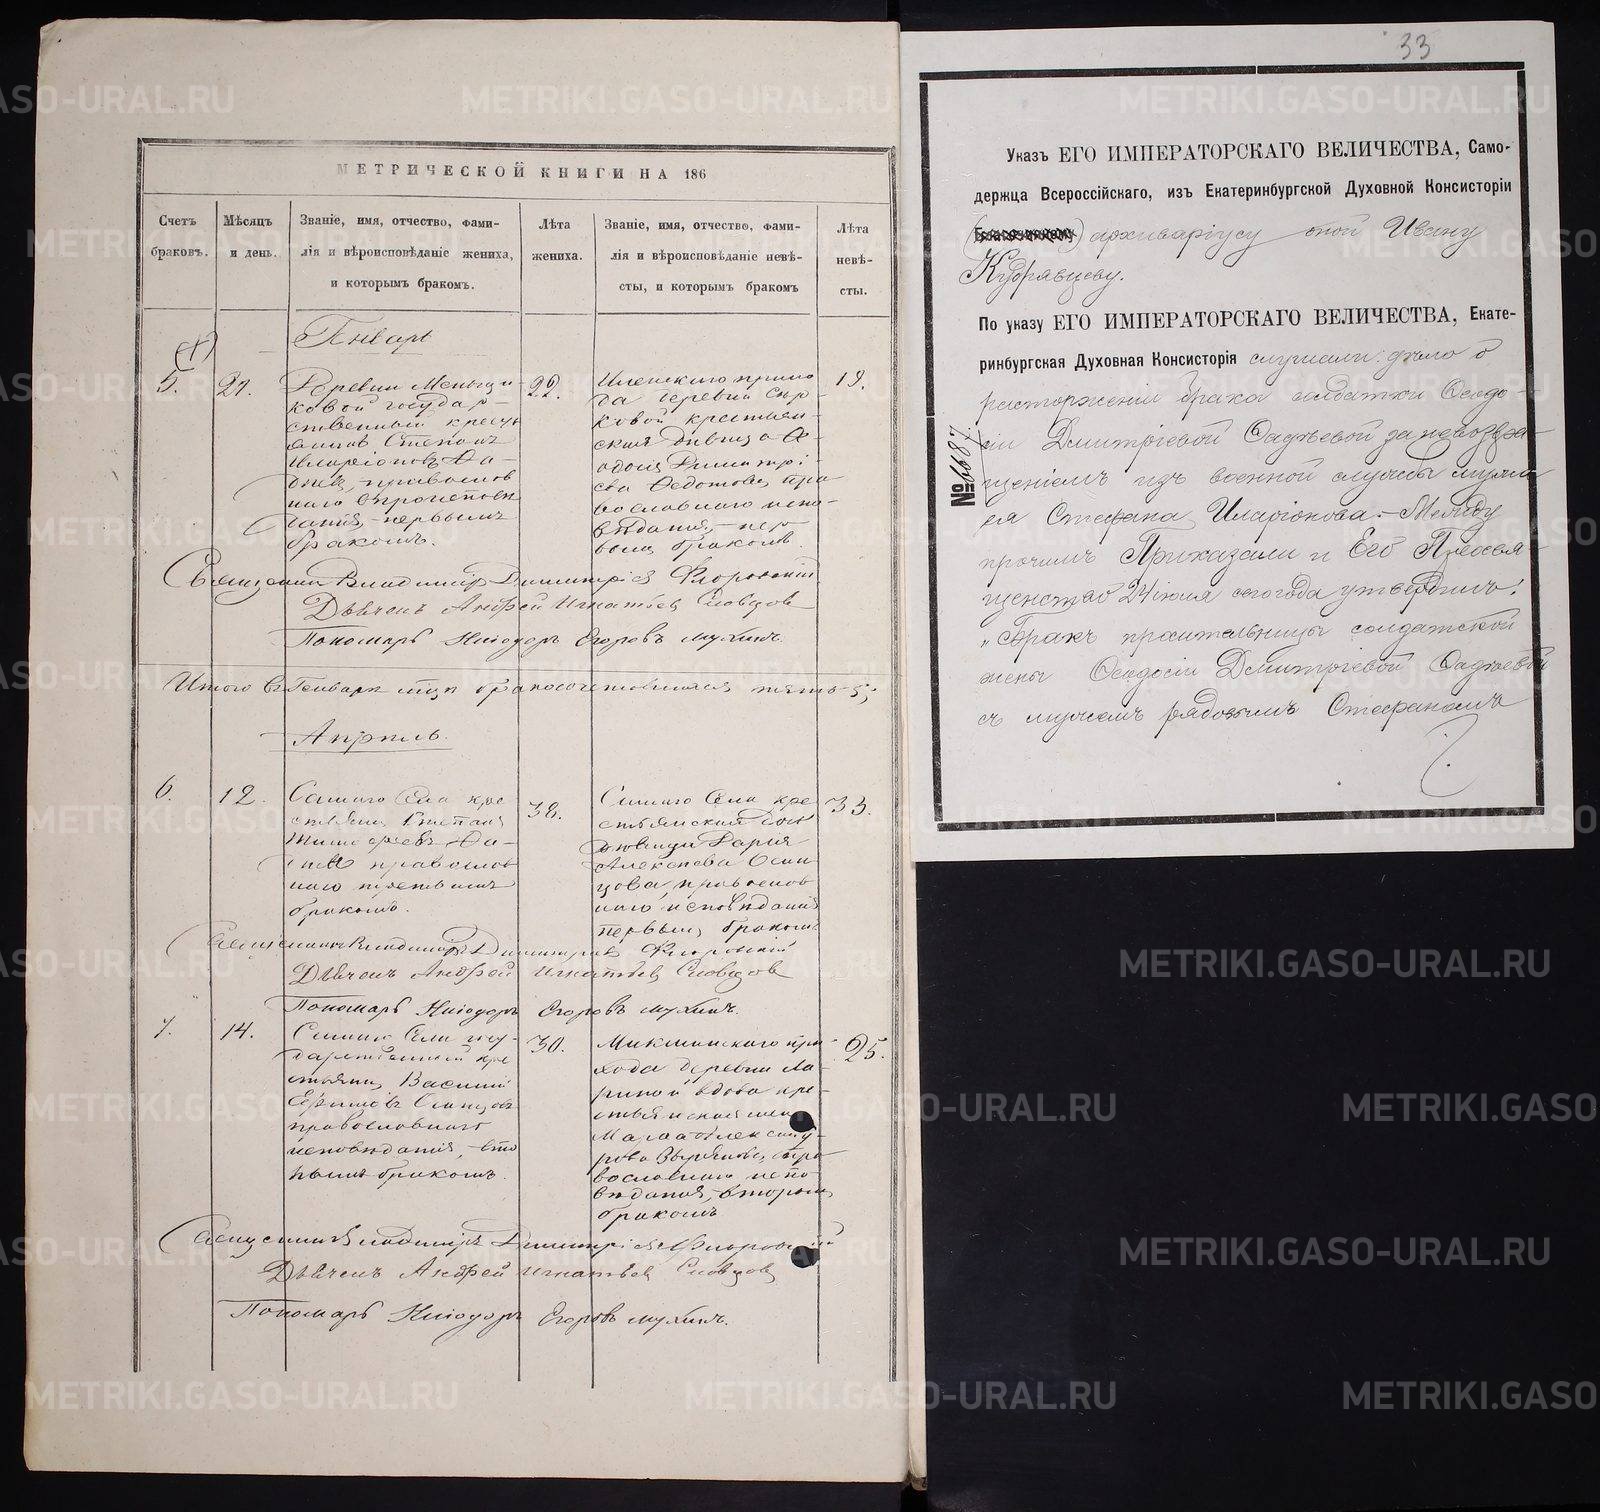 МЕТРИЧЕСКОЙ КНИГИ НА 186
Счетъ браковъ.
Мѣсяцъ и день.
Званіе, имя, отчество, фами-
лія и вѣроисповѣданіе жениха,
и которымъ бракомъ.
Лѣта жениха.
Званіе, имя, отчество, фами-
лія и вѣроисповѣданіе невѣ-
сты, и которымъ бракомъ
Лѣта невѣ-
сты.
Генварь
5.
27.
Деревни Меньщи-
ковой государ-
ственный кресть
янинъ Стефанъ
Иларіоновъ
православ
наго вѣроисповѣ
данія, первымъ
бракомъ.
22.
прихо
да деревни
ковой крестьян-
ская дѣвица Ѳе-
одосія Димитрі-
ева Ѳедотова, пра
вославнаго испо-
вѣданія, пер
вымъ бракомъ.
19.
Священникъ Владиміръ Димитріевъ Флоровскій
Дьячекъ Андрей Игнатьевъ Словцов
Пономарь Никодоръ Егоровъ Мухинъ.
Итого въ Генварѣ м-цѣ бракосочетавшихся пять 5;
Апрѣль.
6.
12.
Самаго Села кре
православ
наго третьимъ
бракомъ.
38.
Самаго Села кре
стьянская
Дарія
Алексѣева Осин
цова, православ
наго исповѣданія
первымъ бракомъ
33.
Священникъ Владиміръ Димитріевъ Флоровскій
Дьячекъ Андрей Игнатьевъ Словцов
Пономарь Никодоръ Егоровъ Мухинъ.
7.
14.
Самаго Села госу-
дарственный кре
стьянинъ Василій
Ефимовъ
православнаго
исповѣданія, вто
рымъ бракомъ.
30.
прихода деревни Ла-
риной вдова кре-
стьянская жена
православнаго испо
вѣданія, вторымъ
бракомъ
25.
Священникъ Владиміръ Димитріевъ Флоровскій
Дьячекъ Андрей Игнатьевъ Словцов
Пономарь Никодоръ Егоровъ Мухинъ.
33
Указъ ЕГО ИМПЕРАТОРСКАГО ВЕЛИЧЕСТВА, Само-
держца Всероссійскаго, изъ Екатеринбургской Духовной Консисторіи
архиваріусу оной Ивану
Кудрявцеву.
По указу ЕГО ИМПЕРАТОРСКАГО ВЕЛИЧЕСТВА, Екате-
ринбургская Духовная Консисторія слушали: дѣло о
расторженіи брака солдатки Ѳеодо-
сіи Дмитріевой Фадѣевой за невозвра-
щеніемъ изъ военной службы мужа
ея Стефана Иларіонова.- Между
прочимъ Приказали и Его Преосвя-
щенство 24 іюля сего года утвердилъ:
„Бракъ просительницы солдатской
жены Ѳеодосіи Дмитріевой Фадѣевой
съ мужемъ рядовымъ Стефаномъ
№ 6687
METRIKI.GASO-URAL.RU